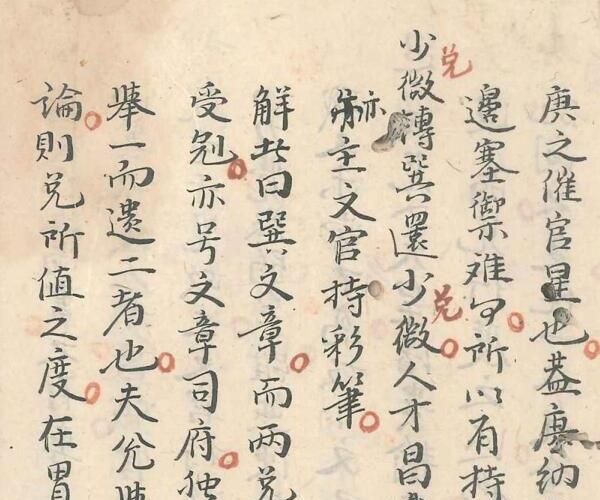 庚之催官星也葢廖納
邊塞禦难句所以有持
少微轉巽還少微人才昌
兑
兑
亦主文官持彩筆
解此曰巽文章而两兑
受剋亦号文章司府独
舉一而遺二者也夫兊
論則兑所值之度在胃